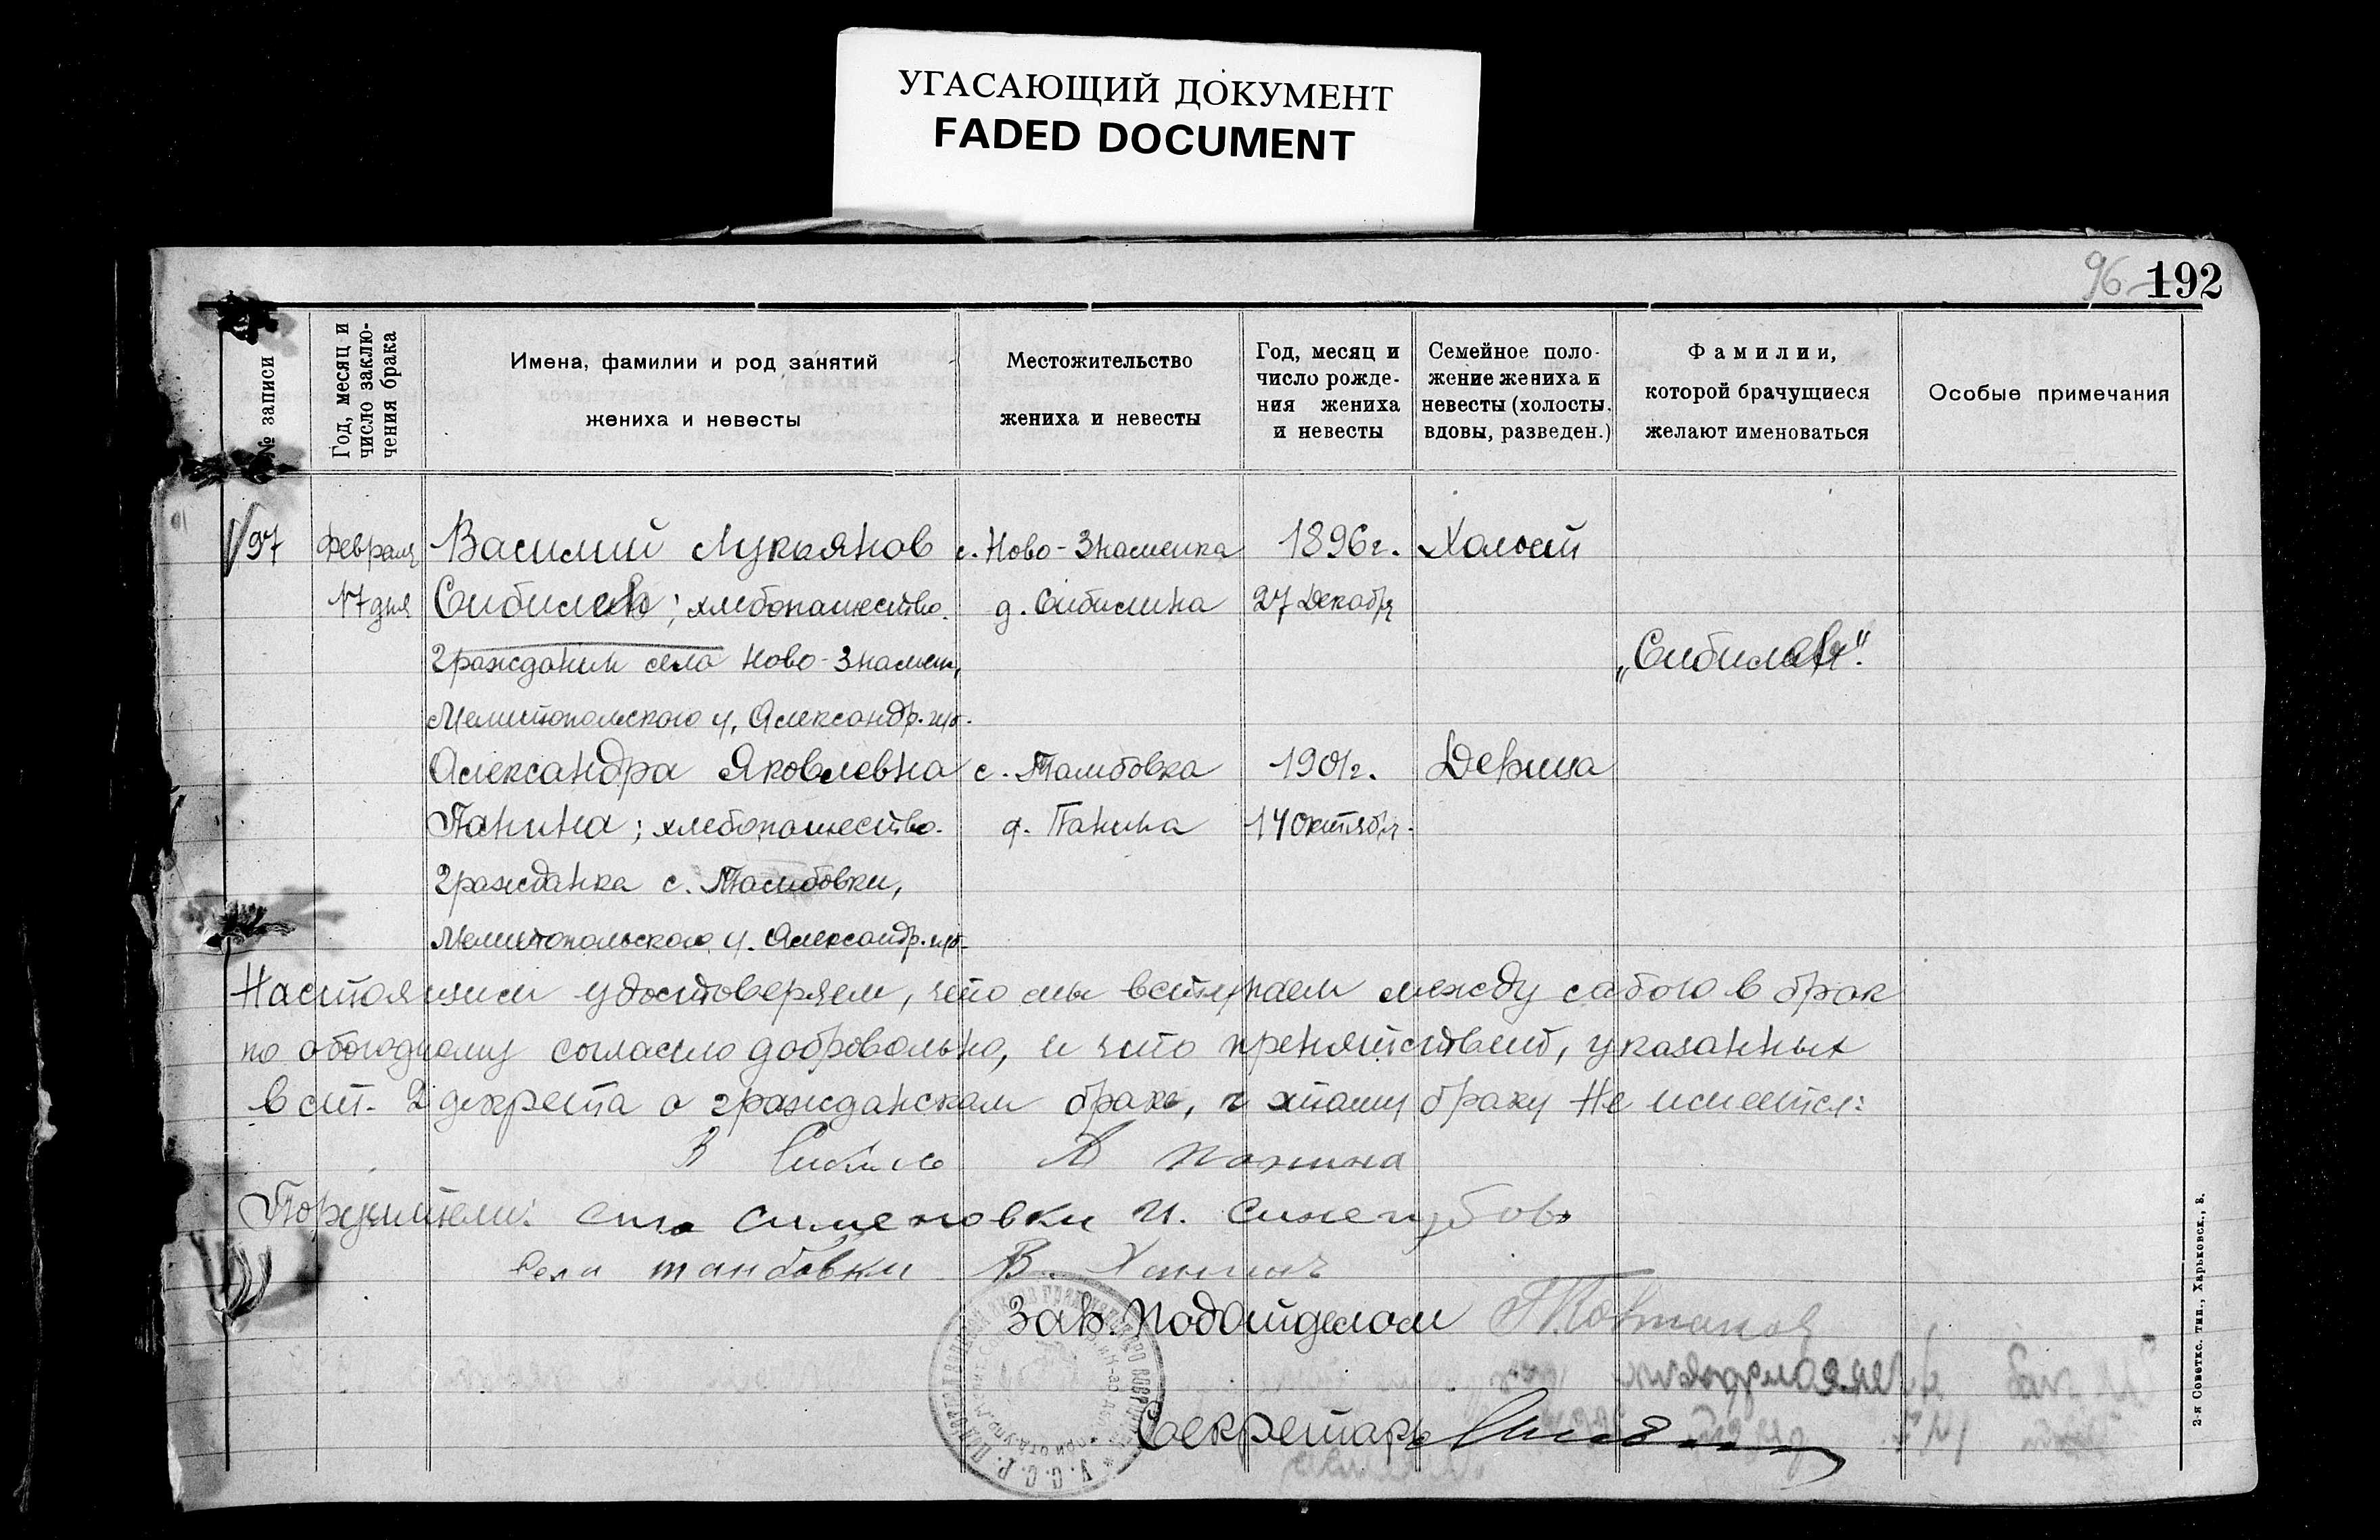 УГАСАЮЩИЙ ДОКУМЕНТ
FADED DOCUMENT
96
192
№ записи
Год, месяц и
число заклю-
чения брака
Имена, фамилии и род занятий
жениха и невесты
Местожительство
жениха и невесты
Год, месяц и
число рожде-
ния жениха
и невесты
Семейное поло-
жение жениха и
невесты (холосты,
вдовы, разведен.)
Фамилии,
которой брачущиеся
желают именоваться
Особые примечания
97 Февраля Василий Лукьянов с. Ново-Знаменка 1896г. Холост
17 дня Сибилев; хлебопашество. д. Сибилина 27 Декабр
Гражданин села Ново-Знамен, „Сибилев".
Мелитопольского у, Александр. губ.
Александра Яковлевна с. Тамбовка 1901г. Девица
Панина; хлебопашество. д. Панина 14 Октябр.
Гражданка с. Тамбовки,
Мелитопольского у. Александр. губ.
Настоящим удостоверяем, что мы вступаем между сабою в брак
по обоюдному согласию добровольно, и что препятствий, указанных
в ст. 2 декрета о гражданском браке, к этому браку не имеется:
В Сибиле А Панина
Поручители: села Сименовки И. Синегубовъ
села танбовки В. Ханинъ
Зав. Подотделом
Секретарь
У. С. С. Р.
2-я Советск. тип., Харьковск., 8.